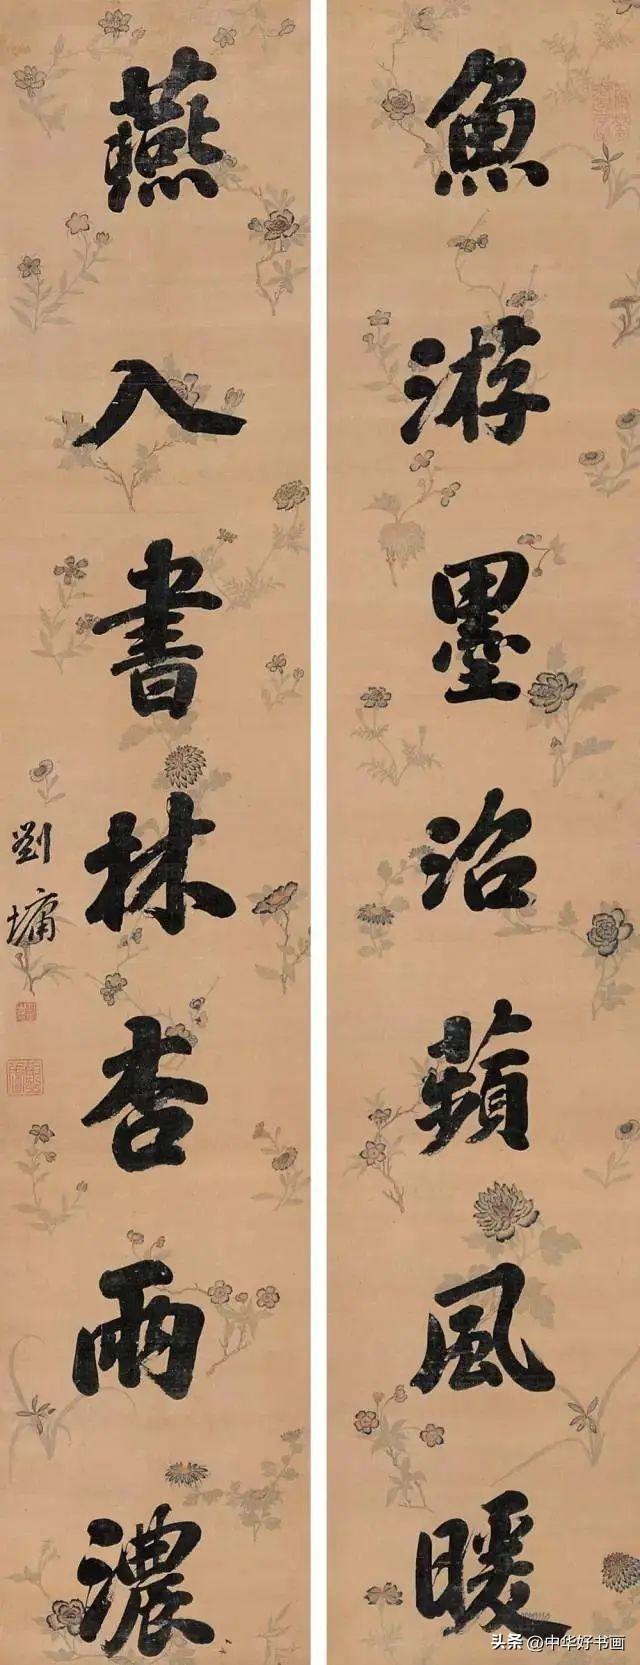 魚游墨沼蘋風暖
燕入書林杏雨濃
劉墉
头条 @中华好书画